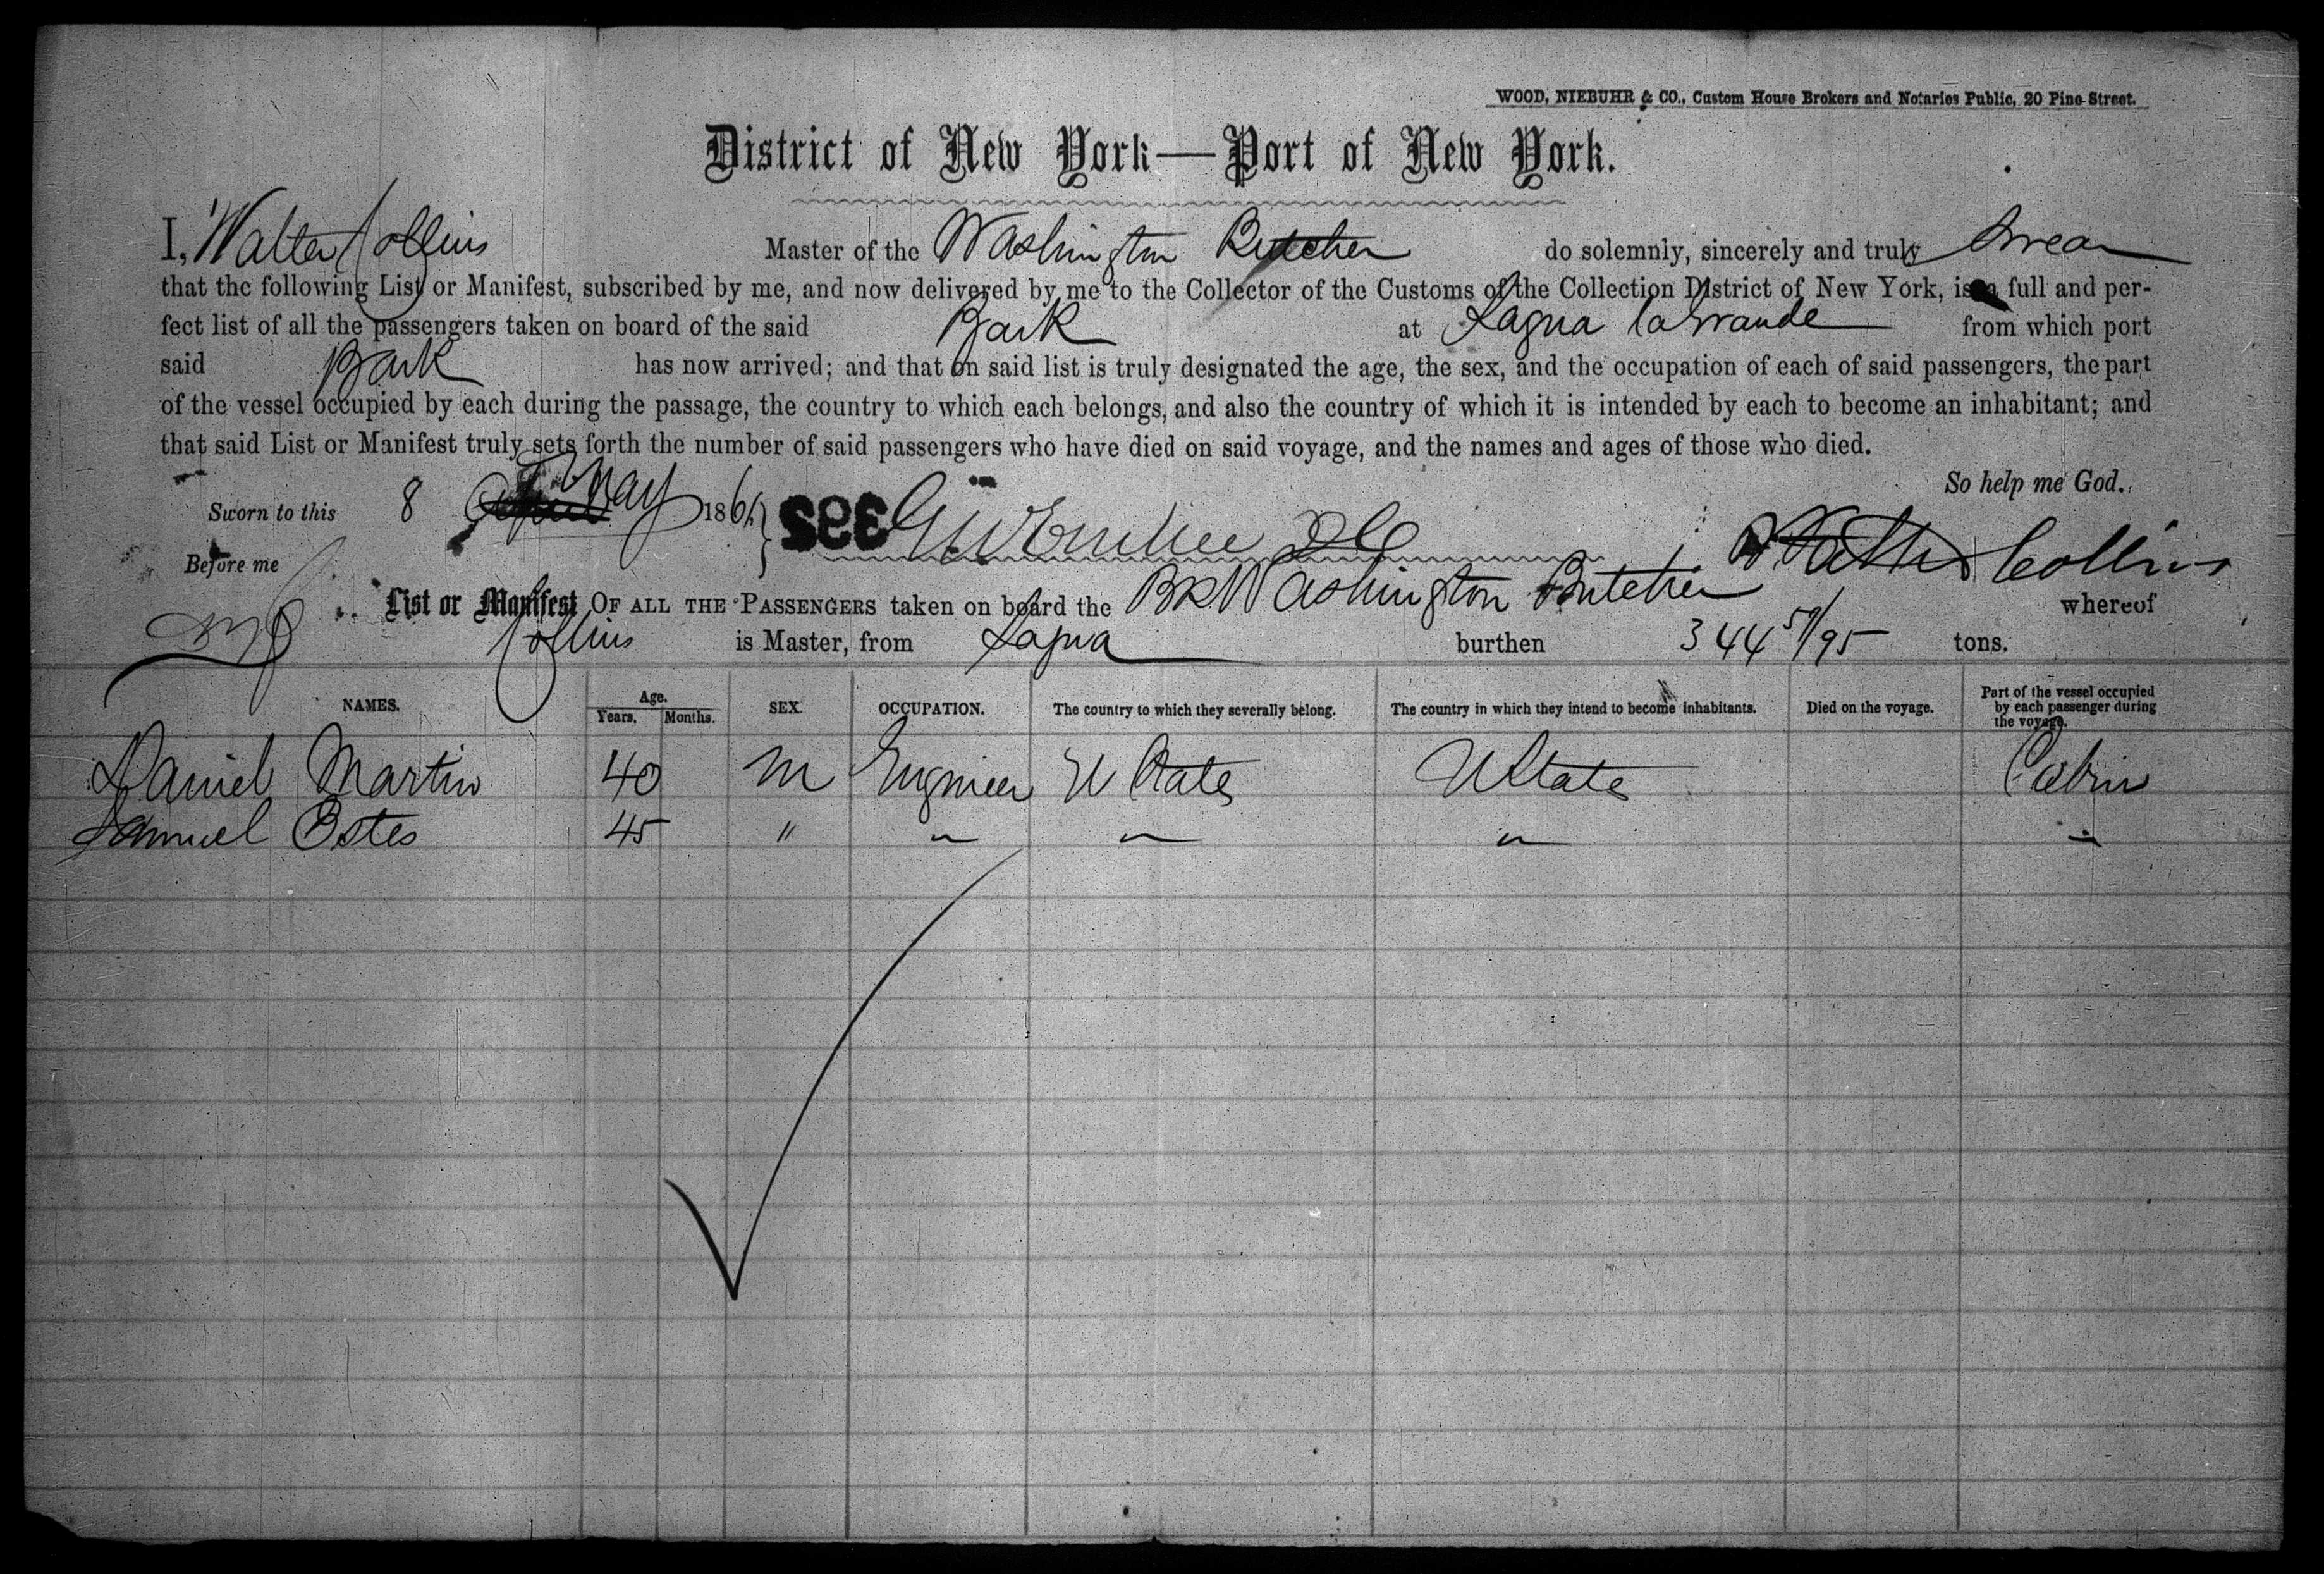 WOOD, NIEBUHR & CO., Custom House Brokers and Notaries Public, 20 Pine Street.
District of New York—Port of New York.
I, Walter Collins Master of the Washington Butcher do solemnly, sincerely and truly swear
that the following List or Manifest, subscribed by me, and now delivered by me to the Collector of the Customs of the Collection District of New York, is a full and per-
fect list of all the passengers taken on board of the said Bark at Sagua la Grande from which port
said Bark has now arrived; and that on said list is truly designated the age, the sex, and the occupation of each of said passengers, the part
of the vessel occupied by each during the passage, the country to which each belongs, and also the country of which it is intended by each to become an inhabitant; and
that said List or Manifest truly sets forth the number of said passengers who have died on said voyage, and the names and ages of those who died.
So help me God.
Sworn to this 8 May 186 392 Walter Collins
Before me
List or Manifest OF ALL THE PASSENGERS taken on board the Bk Washington Butcher whereof
Collins is Master, from Sagua burthen 344 57/95 tons.
NAMES. Age. Years. Months. SEX. OCCUPATION. The country to which they severally belong. The country in which they intend to become inhabitants. Died on the voyage. Part of the vessel occupied by each passenger during the voyage.
Daniel Martin 40 M Engineer U States U States Cabin
Samuel Estes 45 " " " " "